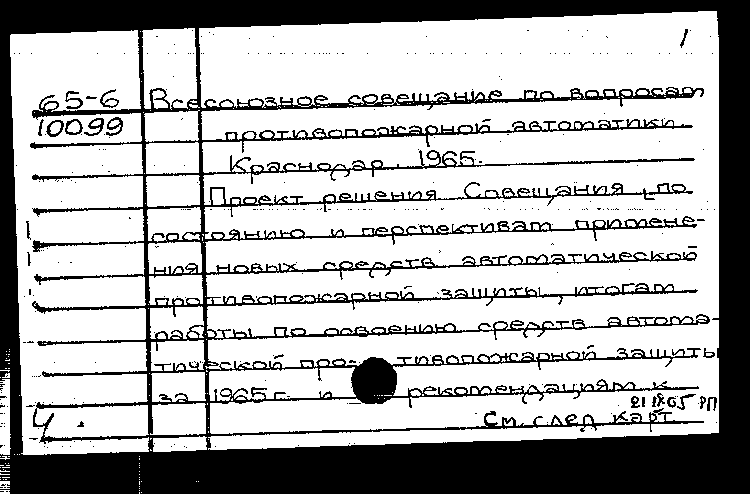 1
65-6 Всесоюзное совещание по вопросам
10099 противопожарной автоматики.
Краснодар. 1965.
Проект решения Совещания [по
состоянию и перспективам примене-
ния новых средств автоматической
противопожарной защиты, итогам
работы по освоению средств автома-
тической про- тивопожарной защиты
за 1965 г. и рекомендациям к
См. след карт